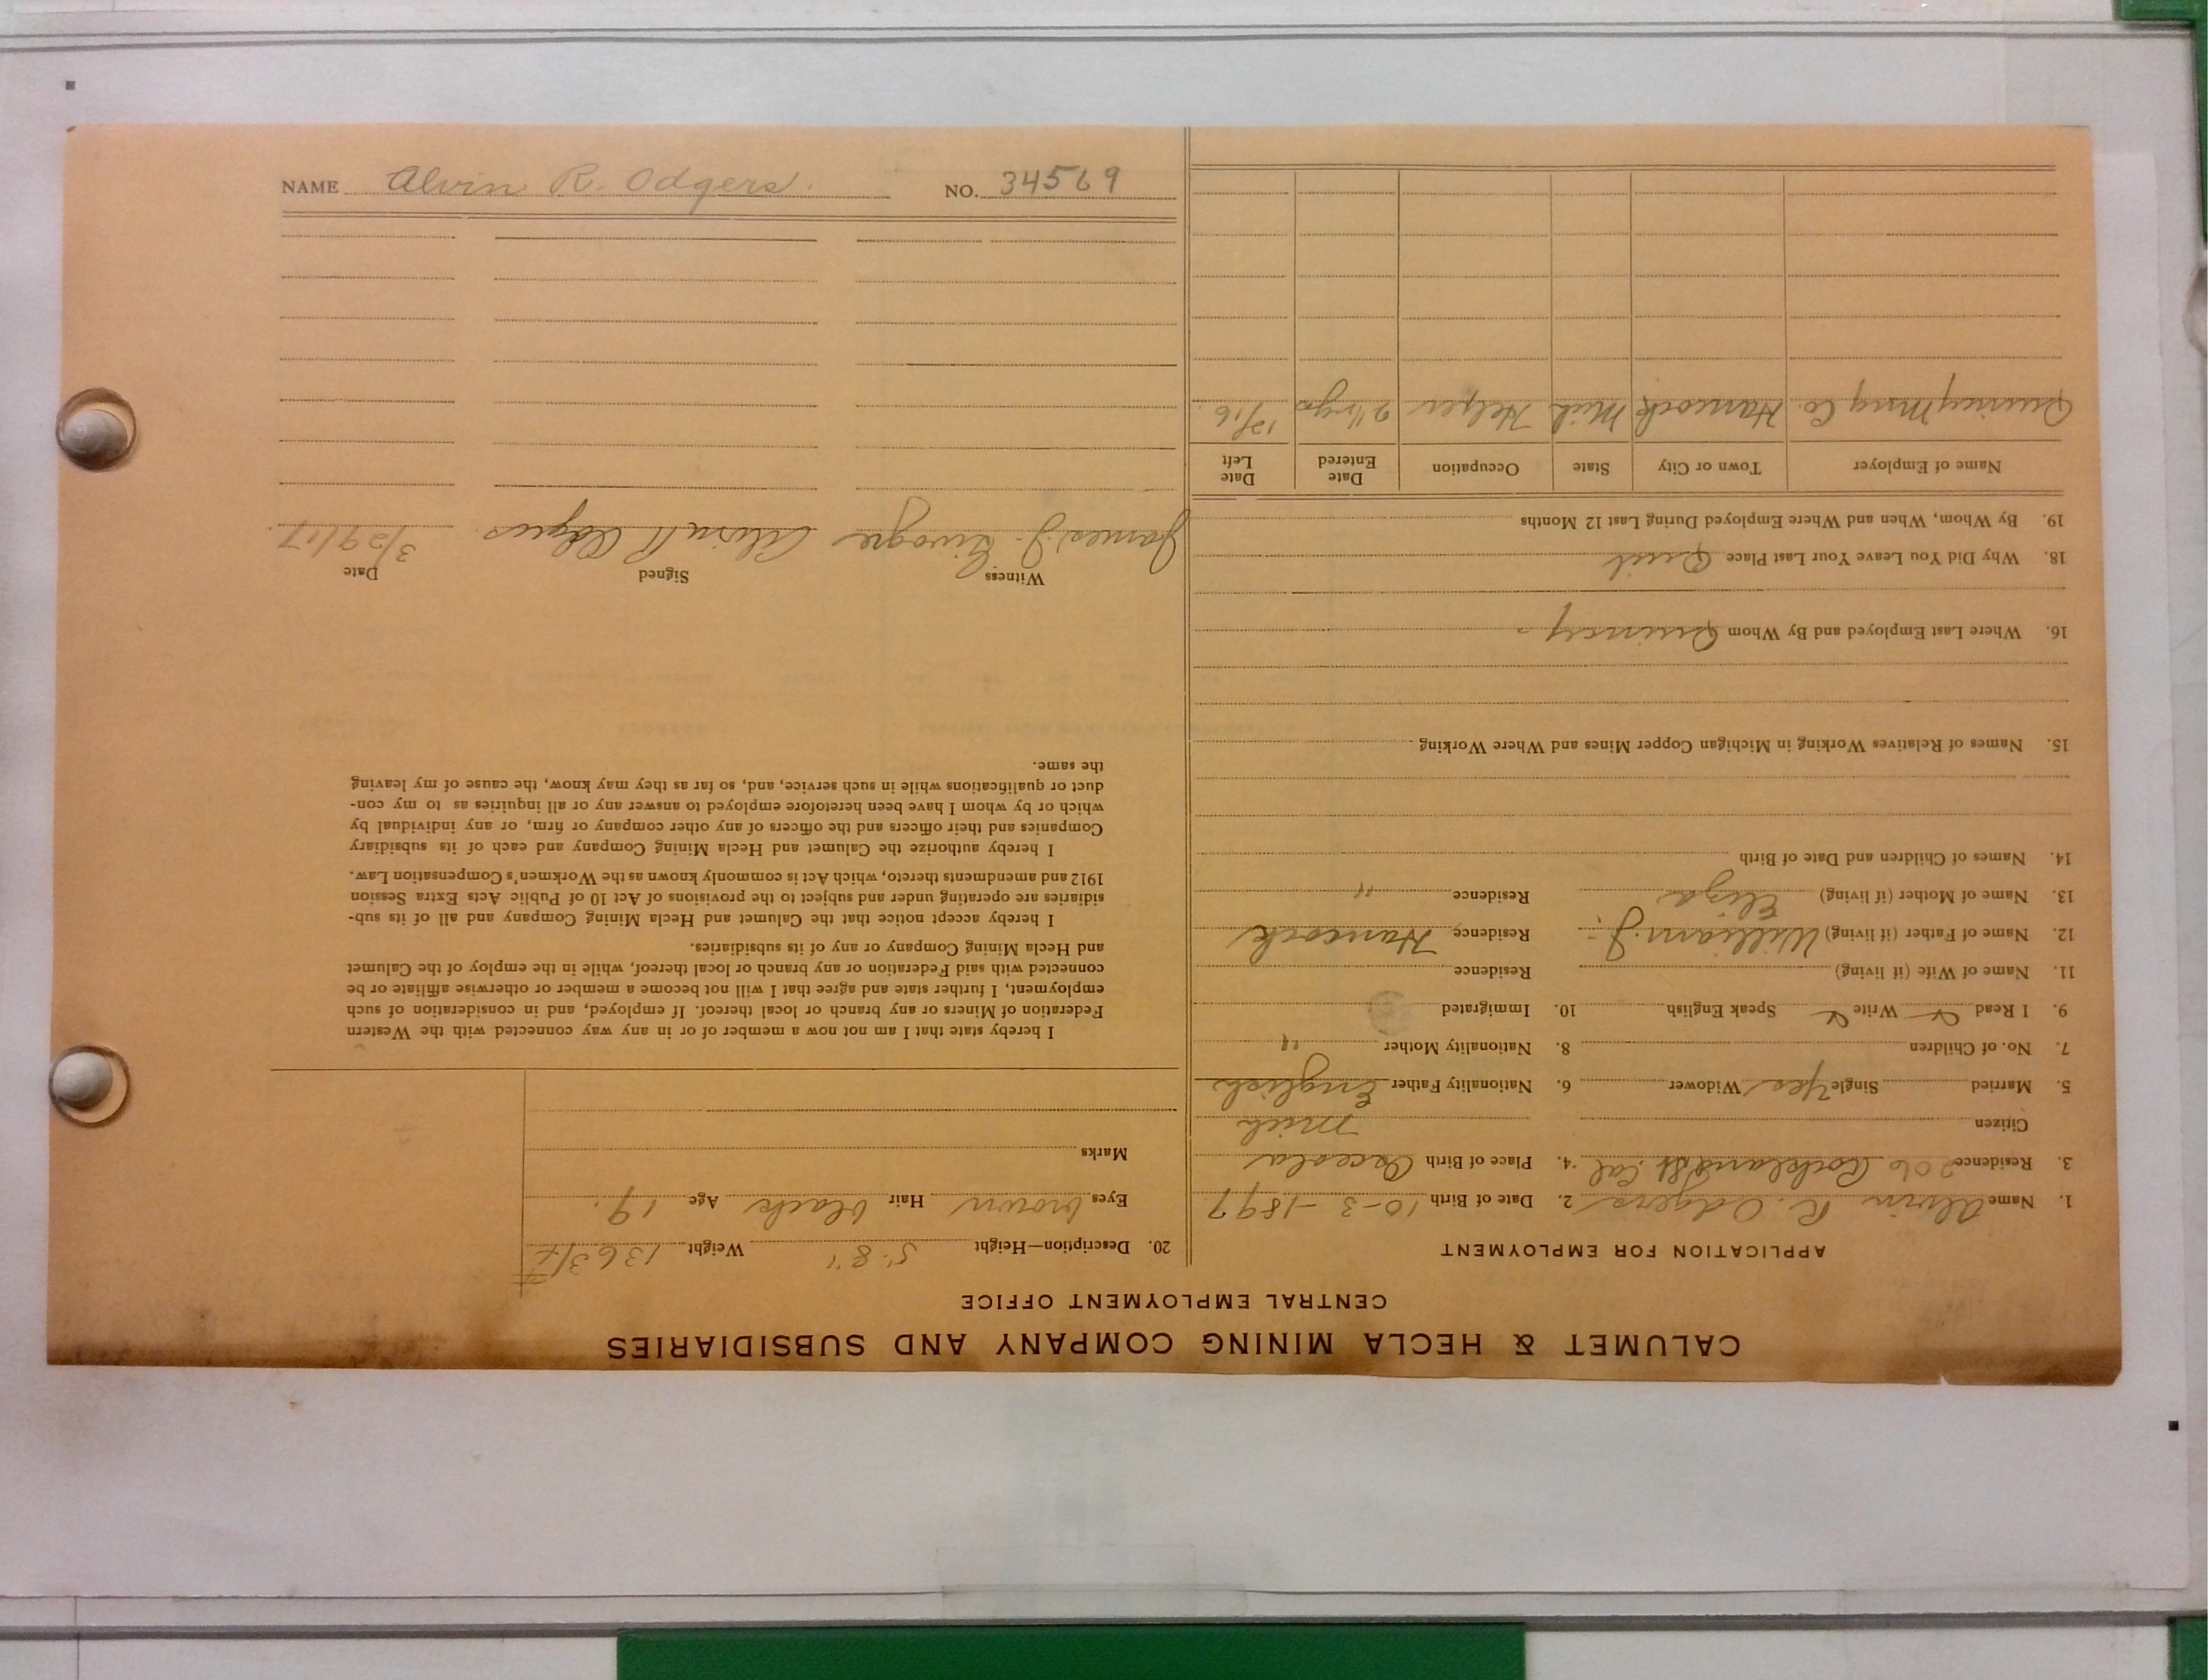 NAME Alvin R. Odgers. NO. 34569
CALUMET & HECLA MINING COMPANY AND SUBSIDIARIES
CENTRAL EMPLOYMENT OFFICE
APPLICATION FOR EMPLOYMENT
1. Name Alvin R. Odgers 2. Date of Birth 10-3-1897
3. Residence 206 Rockland St. Cal 4. Place of Birth Osceola
Citizen Mich
5. Married Single Yes Widower 6. Nationality Father English
7. No. of Children 8. Nationality Mother "
9. I Read Write Speak English 10. Immigrated
11. Name of Wife (if living) Residence
12. Name of Father (if living) William J. Residence Hancock
13. Name of Mother (if living) Eliza Residence "
14. Names of Children and Date of Birth
15. Names of Relatives Working in Michigan Copper Mines and Where Working
16. Where Last Employed and By Whom Quincy -
18. Why Did You Leave Your Last Place Quit
19. By Whom, When and Where Employed During Last 12 Months
Name of Employer Town or City State Occupation Date Entered Date Left
Quincy Mng Co. Hancock Mich Helper 12/16
20. Description—Height 5'.8" Weight 136
Eyes brown Hair black Age 19.
Marks
I hereby state that I am not now a member of or in any way connected with the Western
Federation of Miners or any branch or local thereof. If employed, and in consideration of such
employment, I further state and agree that I will not become a member or otherwise affiliate or be
connected with said Federation or any branch or local thereof, while in the employ of the Calumet
and Hecla Mining Company or any of its subsidiaries.
I hereby accept notice that the Calumet and Hecla Mining Company and all of its sub-
sidiaries are operating under and subject to the provisions of Act 10 of Public Acts Extra Session
1912 and amendments thereto, which Act is commonly known as the Workmen's Compensation Law.
I hereby authorize the Calumet and Hecla Mining Company and each of its subsidiary
Companies and their officers and the officers of any other company or firm, or any individual by
which or by whom I have been heretofore employed to answer any or all inquiries as to my con-
duct or qualifications while in such service, and, so far as they may know, the cause of my leaving
the same.
Witness Signed Date
James J. Alvin R Odgers 3/29/17.